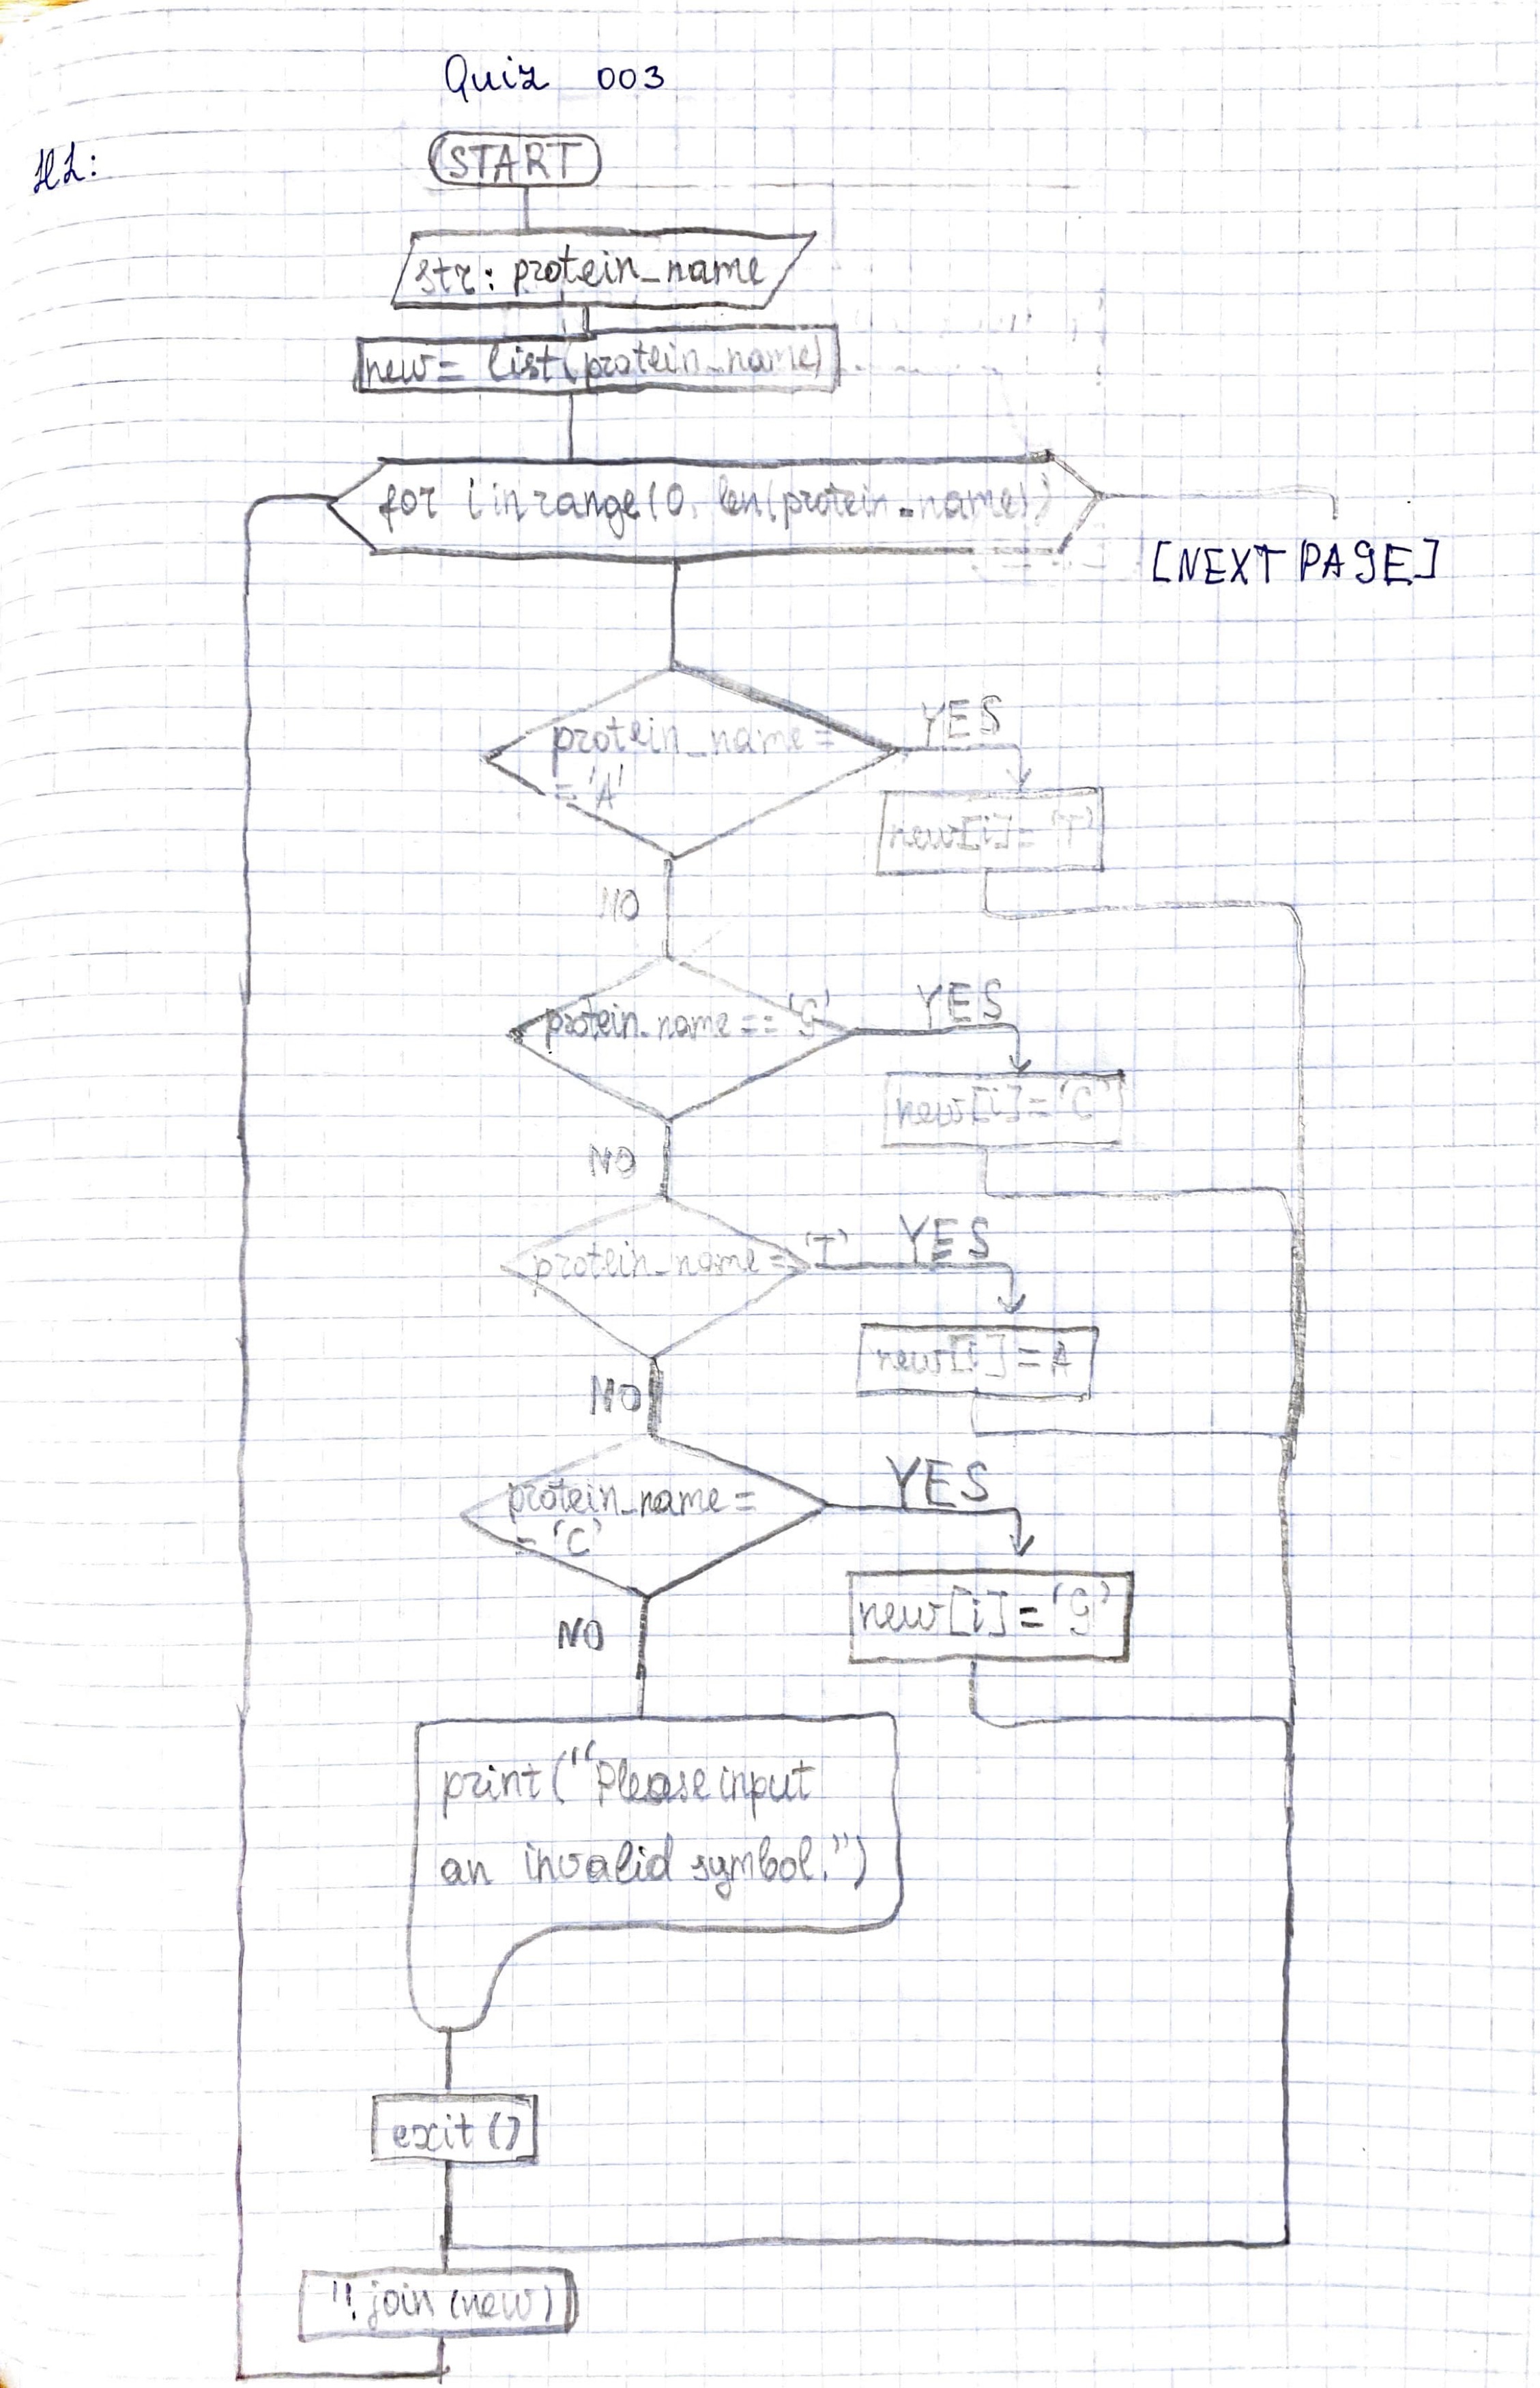 Quiz 003
HL:
START
str: protein_name
new = list(protein_name)
for i in range(0, len(protein_name))
[NEXT PAGE]
protein_name =
= 'A'
YES
new[i] = 'T'
NO
protein_name == 'G'
YES
new[i] = 'C'
NO
protein_name == 'T'
YES
new[i] = A
NO
protein_name =
= 'C'
YES
new[i] = 'G'
NO
print("Please input
an invalid symbol.")
exit()
''.join(new)